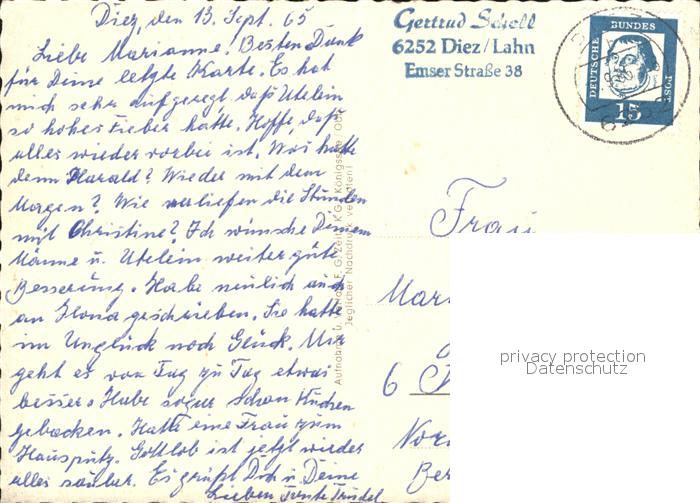 Diez, den 13. Sept. 65
Liebe Marianne! Besten Dank
für Deine letzte Karte. Es hat
mich sehr aufgeregt daß Utelein
so hohes Fieber hatte. Hoffe, daß
alles wieder vorbei ist. Was hatte
denn Harald? Wieder mit dem
Magen? Wie verliefen die Stunden
mit Christine? Ich wünsche Deinem
Manne u. Utelein weiter gute
Besserung. Habe neulich auch
an Ilona geschrieben. Sie hatte
im Unglück noch Glück. Mir
geht es von Tag zu Tag etwas
besser. Habe sogar schon Kuchen
gebacken. Hatte eine Frau zum
Hausputz. Gottlob ist jetzt wieder
alles sauber. Es grüßt Dich u. Deine
Lieben Tante Trudel
Gertrud Scholl
6252 Diez/Lahn
Emser Straße 38
DEUTSCHE BUNDES POST
15
Aufnahme u. Verlag F. G. Zeitz K.G., Königssee / Obb.
(Jeglicher Nachdruck verboten)
Frau
Mar
6
Nor
Ber
privacy protection
Datenschutz